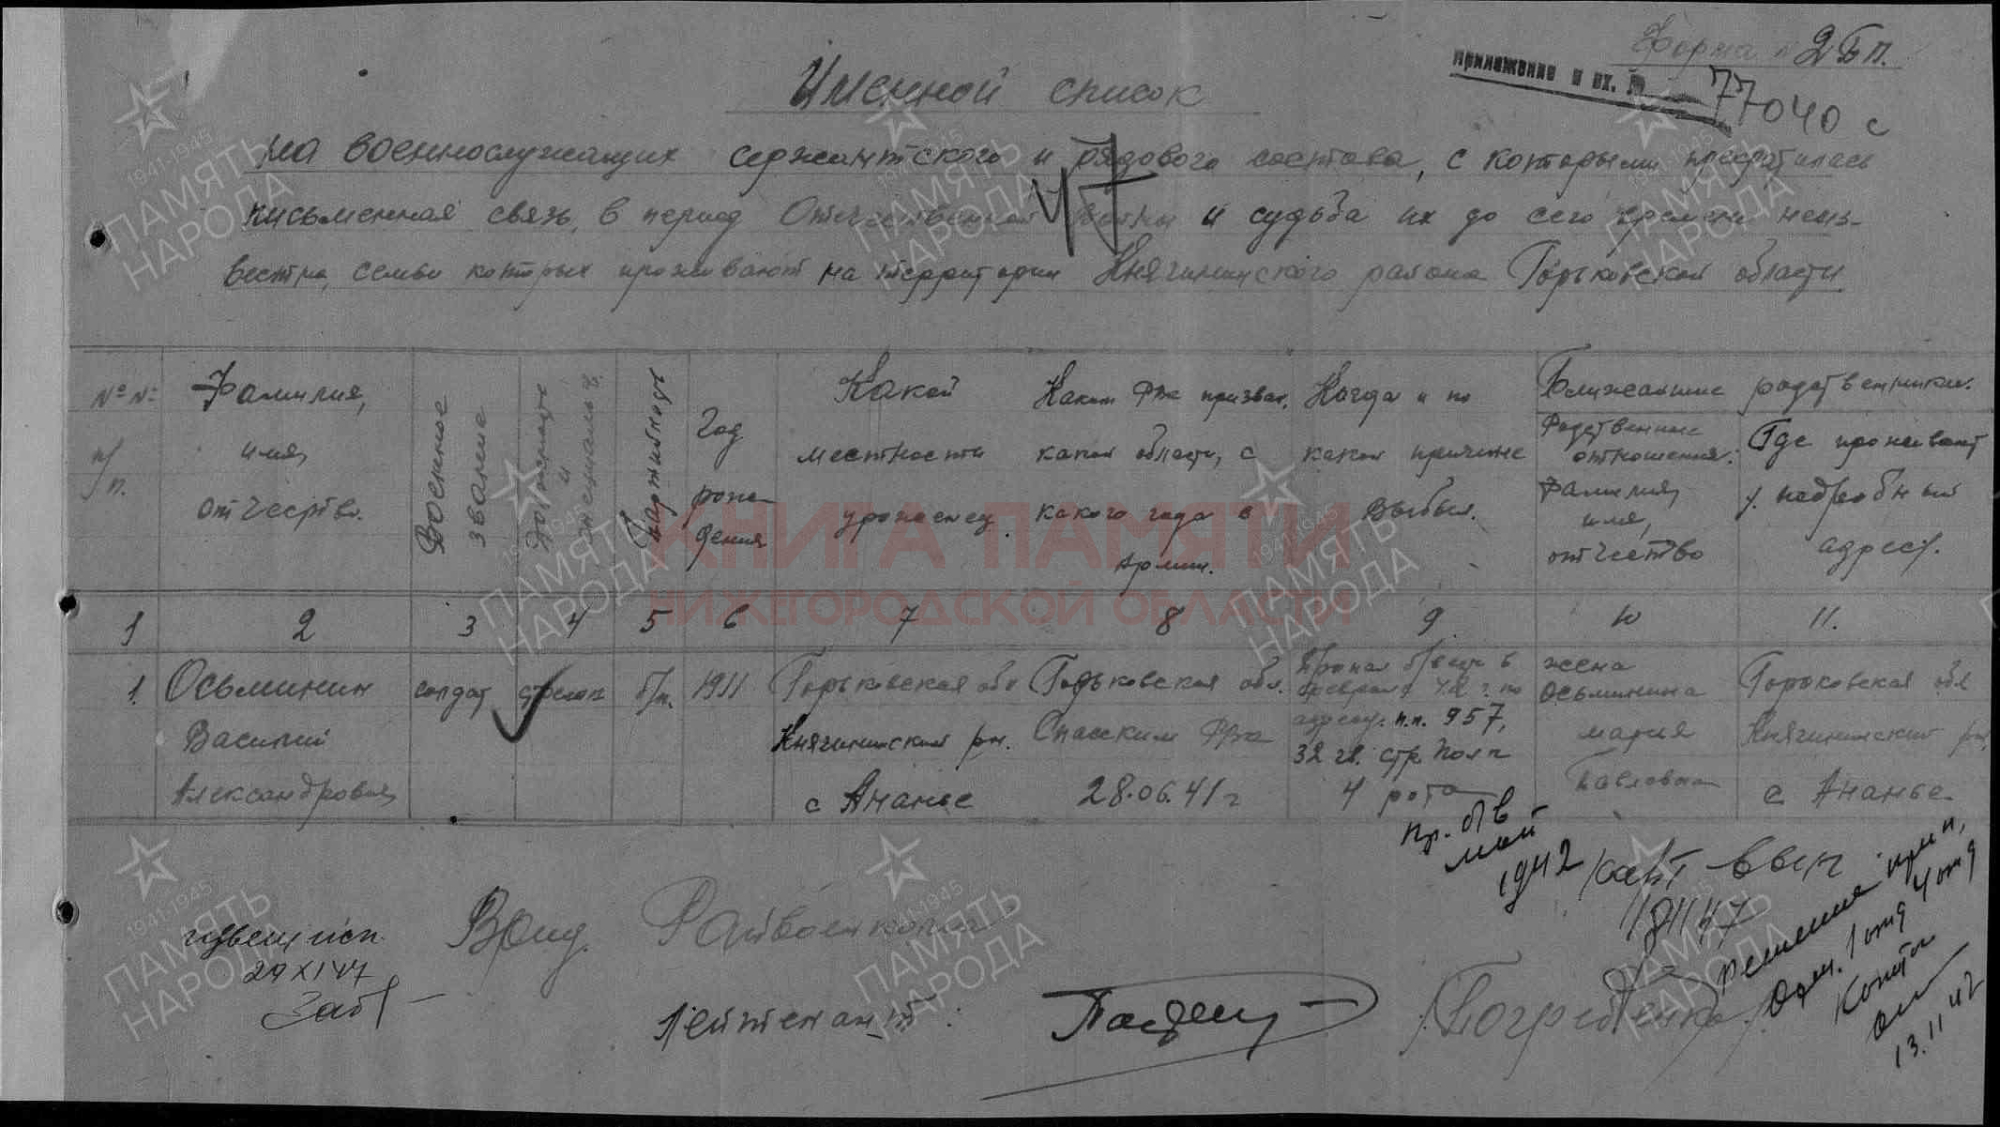 Форма № 2 Б П.
приложение к вх. №
77040 с
Именной список
на военнослужащих сержантского и рядового состава, с которыми прекратилась
письменная связь, в период Отечественной войны и судьба их до сего времени неиз-
вестна, семьи которых проживают на территории Княгининского района Горьковской области
47
№ № п/п.
Фамилия,
имя,
отчество.
Военное звание
Должность и специальн.
Партийность
Год
рож-
дения
Какой
местности
уроженец.
Каким РВК призван,
какой области, с
какого года в
армии.
Когда и по
какой причине
выбыл.
Ближайшие родственники.
Родственные
отношения:
Фамилия,
имя,
отчество
Где проживают
/подробный
адрес/.
1 2 3 4 5 6 7 8 9 10 11.
1. Осьминин
Василий
Александрович
солдат
стрелок
б/п.
1911
Горьковская обл
Княгининский рн.
с Ананье
Горьковская обл.
Спасским РВК
28.06.41 г
Пропал б/вести в
феврале 42 г. по
адресу: п.п. 957,
32 гв. стр. полк
4 рота
жена
Осьминина
Мария
Павловна
Горьковская обл
Княгининский рн,
с Ананье
пр. б/в
май
1942
извещ исп.
Врид. Райвоенкома
Лейтенант:
13.11.47
КНИГА ПАМЯТИ
НИЖЕГОРОДСКОЙ ОБЛАСТИ
1941-1945
ПАМЯТЬ
НАРОДА